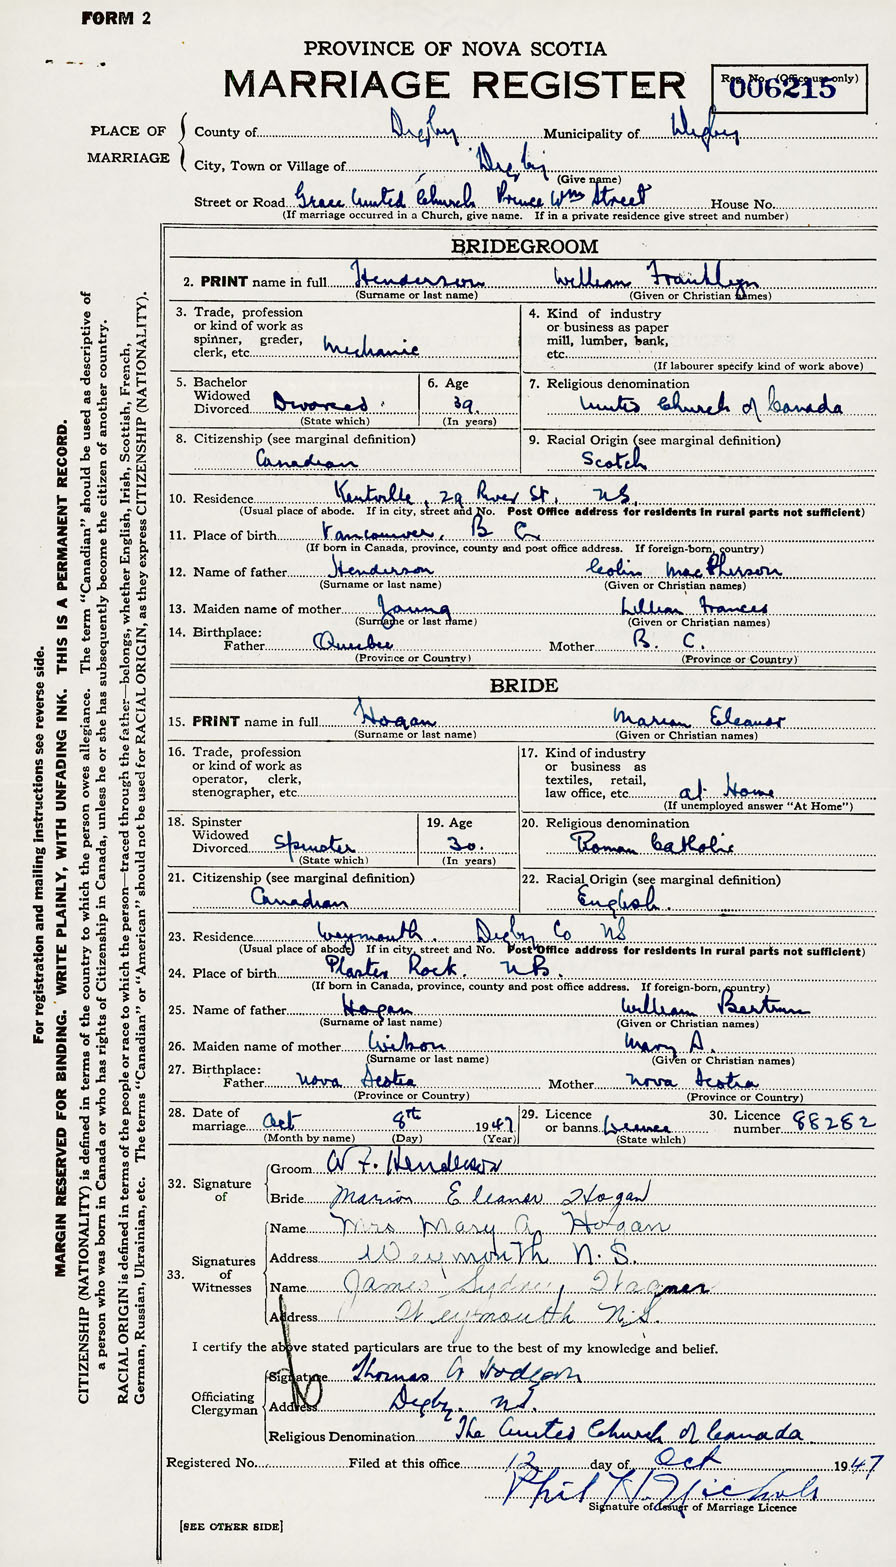 FORM 2
PROVINCE OF NOVA SCOTIA
MARRIAGE REGISTER
Reg. No. (Office use only)
006215
PLACE OF MARRIAGE
County of Digby Municipality of Digby
City, Town or Village of Digby
(Give name)
Street or Road Grace United Church Prince Wm Street House No.
(If marriage occurred in a Church, give name. If in a private residence give street and number)
BRIDEGROOM
2. PRINT name in full Henderson William Franklyn
(Surname or last name) (Given or Christian names)
3. Trade, profession
or kind of work as
spinner, grader,
clerk, etc. Mechanic
4. Kind of industry
or business as paper
mill, lumber, bank,
etc.
(If labourer specify kind of work above)
5. Bachelor
Widowed
Divorced Divorced
(State which)
6. Age
39
(In years)
7. Religious denomination
United Church of Canada
8. Citizenship (see marginal definition)
Canadian
9. Racial Origin (see marginal definition)
Scotch
10. Residence Kentville, 29 River St, NS.
(Usual place of abode. If in city, street and No. Post Office address for residents in rural parts not sufficient)
11. Place of birth Vancouver, B C
(If born in Canada, province, county and post office address. If foreign-born, country)
12. Name of father Henderson Colin MacPherson
(Surname or last name) (Given or Christian names)
13. Maiden name of mother Young Lillian Frances
(Surname or last name) (Given or Christian names)
14. Birthplace:
Father Quebec Mother B. C.
(Province or Country) (Province or Country)
BRIDE
15. PRINT name in full Hogan Marion Eleanor
(Surname or last name) (Given or Christian names)
16. Trade, profession
or kind of work as
operator, clerk,
stenographer, etc.
17. Kind of industry
or business as
textiles, retail,
law office, etc. at Home
(If unemployed answer "At Home")
18. Spinster
Widowed
Divorced Spinster
(State which)
19. Age
30.
(In years)
20. Religious denomination
Roman Catholic
21. Citizenship (see marginal definition)
Canadian
22. Racial Origin (see marginal definition)
English.
23. Residence Weymouth. Digby Co NS
(Usual place of abode) If in city, street and No. Post Office address for residents in rural parts not sufficient)
24. Place of birth Plaster Rock. NB.
(If born in Canada, province, county and post office address. If foreign-born, country)
25. Name of father Hogan William Bertrum
(Surname or last name) (Given or Christian names)
26. Maiden name of mother Wilson Mary A.
(Surname or last name) (Given or Christian names)
27. Birthplace:
Father Nova Scotia Mother Nova Scotia
(Province or Country) (Province or Country)
28. Date of
marriage Oct 8th 1947
(Month by name) (Day) (Year)
29. Licence
or banns License
(State which)
30. Licence
number 88282
32. Signature of
Groom W. F. Henderson
Bride Marion Eleanor Hogan
33. Signatures of Witnesses
Name Mrs Mary A Hogan
Address Weymouth N.S.
Name James Sydney Wagner
Address Weymouth N.S.
I certify the above stated particulars are true to the best of my knowledge and belief.
Officiating Clergyman
Signature Thomas A Hodgson
Address Digby. NS.
Religious Denomination The United Church of Canada
Registered No. Filed at this office 12 day of Oct 1947
Phil H. Nichols
Signature of Issuer of Marriage Licence
[SEE OTHER SIDE]
For registration and mailing instructions see reverse side.
MARGIN RESERVED FOR BINDING. WRITE PLAINLY, WITH UNFADING INK. THIS IS A PERMANENT RECORD.
CITIZENSHIP (NATIONALITY) is defined in terms of the country to which the person owes allegiance. The term "Canadian" should be used as descriptive of
a person who was born in Canada or who has rights of Citizenship in Canada, unless he or she has subsequently become the citizen of another country.
RACIAL ORIGIN is defined in terms of the people or race to which the person—traced through the father—belongs, whether English, Irish, Scottish, French,
German, Russian, Ukrainian, etc. The terms "Canadian" or "American" should not be used for RACIAL ORIGIN, as they express CITIZENSHIP (NATIONALITY).